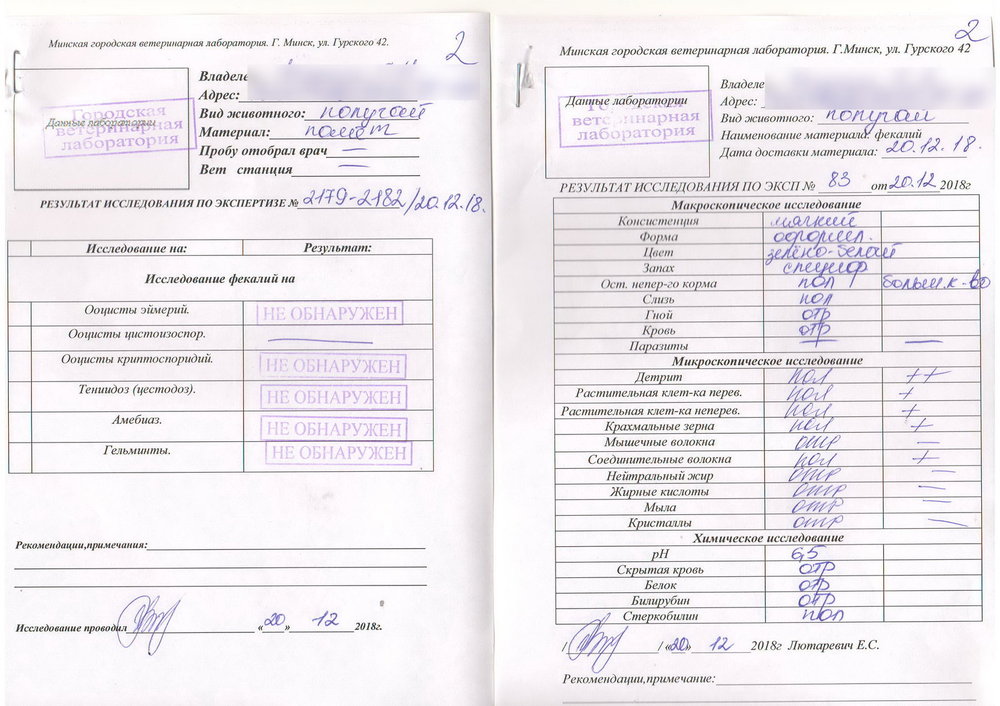 2
Минская городская ветеринарная лаборатория. Г. Минск, ул. Гурского 42.
Данные лаборатории
Городская
ветеринарная
лаборатория
Владеле
Адрес:
Вид животного: попугай
Материал: помёт
Пробу отобрал врач —
Вет станция —
РЕЗУЛЬТАТ ИССЛЕДОВАНИЯ ПО ЭКСПЕРТИЗЕ № 2179-2182/20.12.18.
Исследование на: Результат:
Исследование фекалий на
Ооцисты эймерий. НЕ ОБНАРУЖЕН
Ооцисты цистоизоспор. —
Ооцисты криптоспоридий. НЕ ОБНАРУЖЕН
Тениидоз (цестодоз). НЕ ОБНАРУЖЕН
Амебиаз. НЕ ОБНАРУЖЕН
Гельминты. НЕ ОБНАРУЖЕН
Рекомендации,примечания:
Исследование проводил «20» 12 2018г.
2
Минская городская ветеринарная лаборатория. Г.Минск, ул. Гурского 42
Данные лаборатории
Городская
ветеринарная
лаборатория
Владеле
Адрес:
Вид животного: попугай
Наименование материала: фекалий
Дата доставки материала: 20.12.18.
РЕЗУЛЬТАТ ИССЛЕДОВАНИЯ ПО ЭКСП № 83 от 20.12 2018г
Макроскопическое исследование
Консистенция мягкий
Форма оформл.
Цвет зелёно-белый
Запах специф
Ост. непер-го корма пол больш. к-во
Слизь пол
Гной отр
Кровь отр
Паразиты — —
Микроскопическое исследование
Детрит пол ++
Растительная клет-ка перев. пол +
Растительная клет-ка неперев. пол +
Крахмальные зерна пол +
Мышечные волокна отр —
Соединительные волокна пол +
Нейтральный жир отр —
Жирные кислоты отр —
Мыла отр —
Кристаллы отр —
Химическое исследование
pH 6,5
Скрытая кровь отр
Белок отр
Билирубин отр
Стеркобилин пол
/ / «20» 12 2018г Лютаревич Е.С.
Рекомендации,примечание: